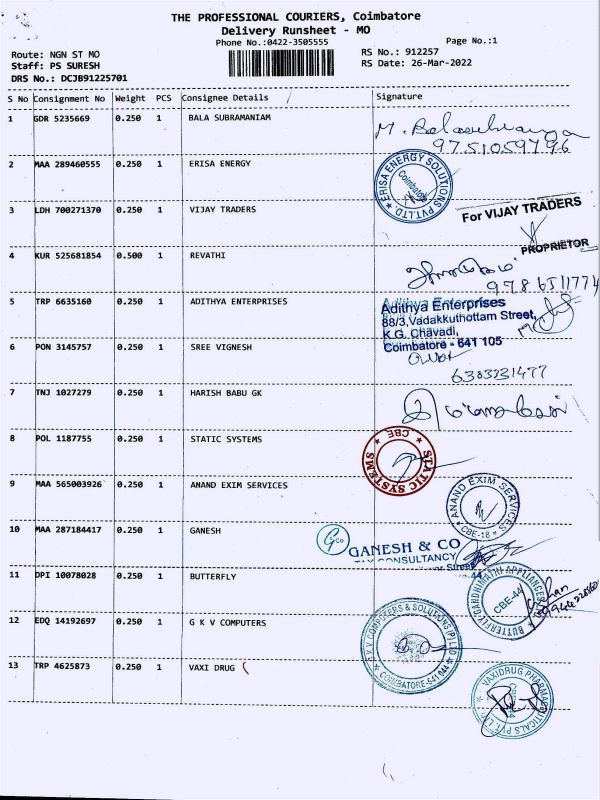 THE PROFESSIONAL COURIERS, Coimbatore
Delivery Runsheet - MO
Phone No.:0422-3505555
Page No.:1
Route: NGN ST MO
Staff: PS SURESH
DRS No.: DCJB91225701
RS No.: 912257
RS Date: 26-Mar-2022
S No Consignment No Weight PCS Consignee Details Signature
1 GDR 5235669 0.250 1 BALA SUBRAMANIAM
9751059796
2 MAA 289460555 0.250 1 ERISA ENERGY
ERISA ENERGY SOLUTIONS PVT.LTD.
Coimbatore
3 LDH 700271370 0.250 1 VIJAY TRADERS
For VIJAY TRADERS
PROPRIETOR
4 KUR 525681854 0.500 1 REVATHI
5 TRP 6635160 0.250 1 ADITHYA ENTERPRISES
Adithya Enterprises
88/3,Vadakkuthottam Street,
K.G. Chavadi,
Coimbatore - 641 105
6 PON 3145757 0.250 1 SREE VIGNESH
6383231477
7 TNJ 1027279 0.250 1 HARISH BABU GK
8 POL 1187755 0.250 1 STATIC SYSTEMS
STATIC SYSTEMS
CBE
9 MAA 565003926 0.250 1 ANAND EXIM SERVICES
ANAND EXIM SERVICES
CBE-18
10 MAA 287184417 0.250 1 GANESH
GANESH & CO
CONSULTANCY
11 DPI 10078028 0.250 1 BUTTERFLY
BUTTERFLY GANDHIMATHI APPLIANCES
CBE-44
12 EDQ 14192697 0.250 1 G K V COMPUTERS
G.K.V. COMPUTERS & SOLUTIONS (P) LTD
COIMBATORE-641 044
13 TRP 4625873 0.250 1 VAXI DRUG
VAXIDRUG PHARMACEUTICALS PVT. L